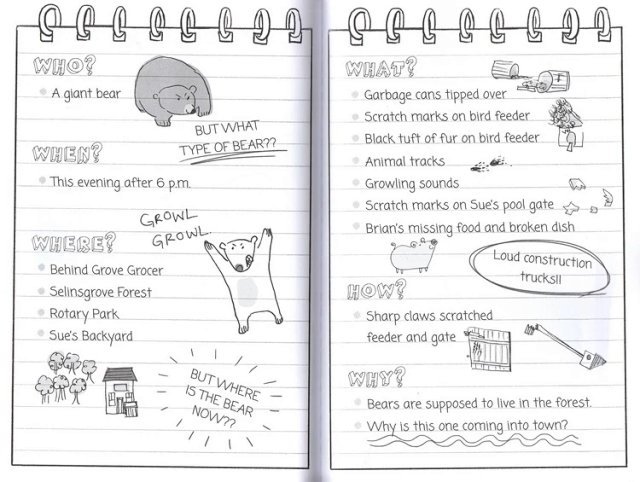 WHO?
A giant bear
BUT WHAT
TYPE OF BEAR??
WHEN?
This evening after 6 p.m.
GROWL
GROWL.
WHERE?
Behind Grove Grocer
Selinsgrove Forest
Rotary Park
Sue's Backyard
BUT WHERE
IS THE BEAR
NOW??
WHAT?
Garbage cans tipped over
Scratch marks on bird feeder
Black tuft of fur on bird feeder
Animal tracks
Growling sounds
Scratch marks on Sue's pool gate
Brian's missing food and broken dish
Loud construction
trucks!!
HOW?
Sharp claws scratched
feeder and gate
WHY?
Bears are supposed to live in the forest.
Why is this one coming into town?